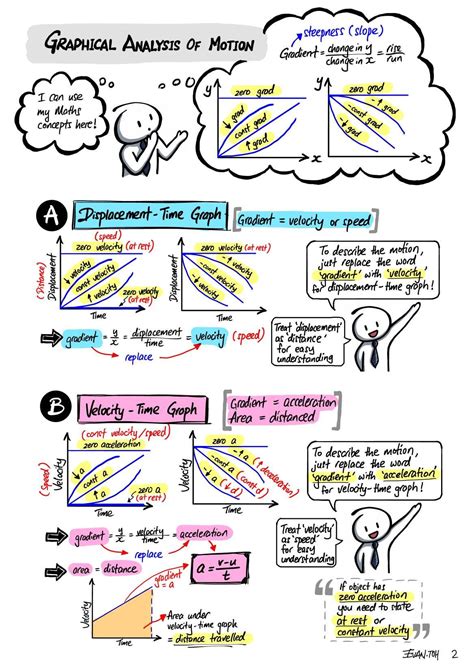 GRAPHICAL ANALYSIS OF MOTION
I can use
my Maths
concepts here!
steepness (slope)
Gradient = change in y / change in x = rise / run
y
zero grad
↓ grad
const grad
↑ grad
x
y
zero grad
-↑ grad
-const grad
-↓ grad
x
A Displacement-Time Graph
Gradient = velocity or speed
(speed)
zero velocity (at rest)
↓ velocity
const velocity
↑ velocity
zero velocity
(at rest)
(Distance)
Displacement
Time
zero velocity (at rest)
-↑ velocity
-const velocity
-↓ velocity
Displacement
Time
gradient = y/x = displacement / time = velocity (speed)
replace
To describe the motion,
just replace the word
'gradient' with 'velocity'
for displacement-time graph!
Treat 'displacement'
as 'distance'
for easy
understanding
B Velocity-Time Graph
Gradient = acceleration
Area = distanced
(const velocity/speed)
zero acceleration
↓ a
const a
↑ a
zero a
(at rest)
(Speed)
Velocity
Time
zero a
-↑ a (↑ deceleration)
-const a (const d)
-↓ a (↓ d)
Velocity
Time
gradient = y/x = velocity / time = acceleration
replace
a = v-u / t
area = distance
gradient = a
Velocity
Time
Area under
velocity-time graph
= distance travelled
To describe the motion,
just replace the word
'gradient' with 'acceleration'
for velocity-time graph!
Treat 'velocity'
as 'speed'
for easy
understanding
If object has
zero acceleration
you need to state
at rest or
constant velocity
EVAN TOH 2